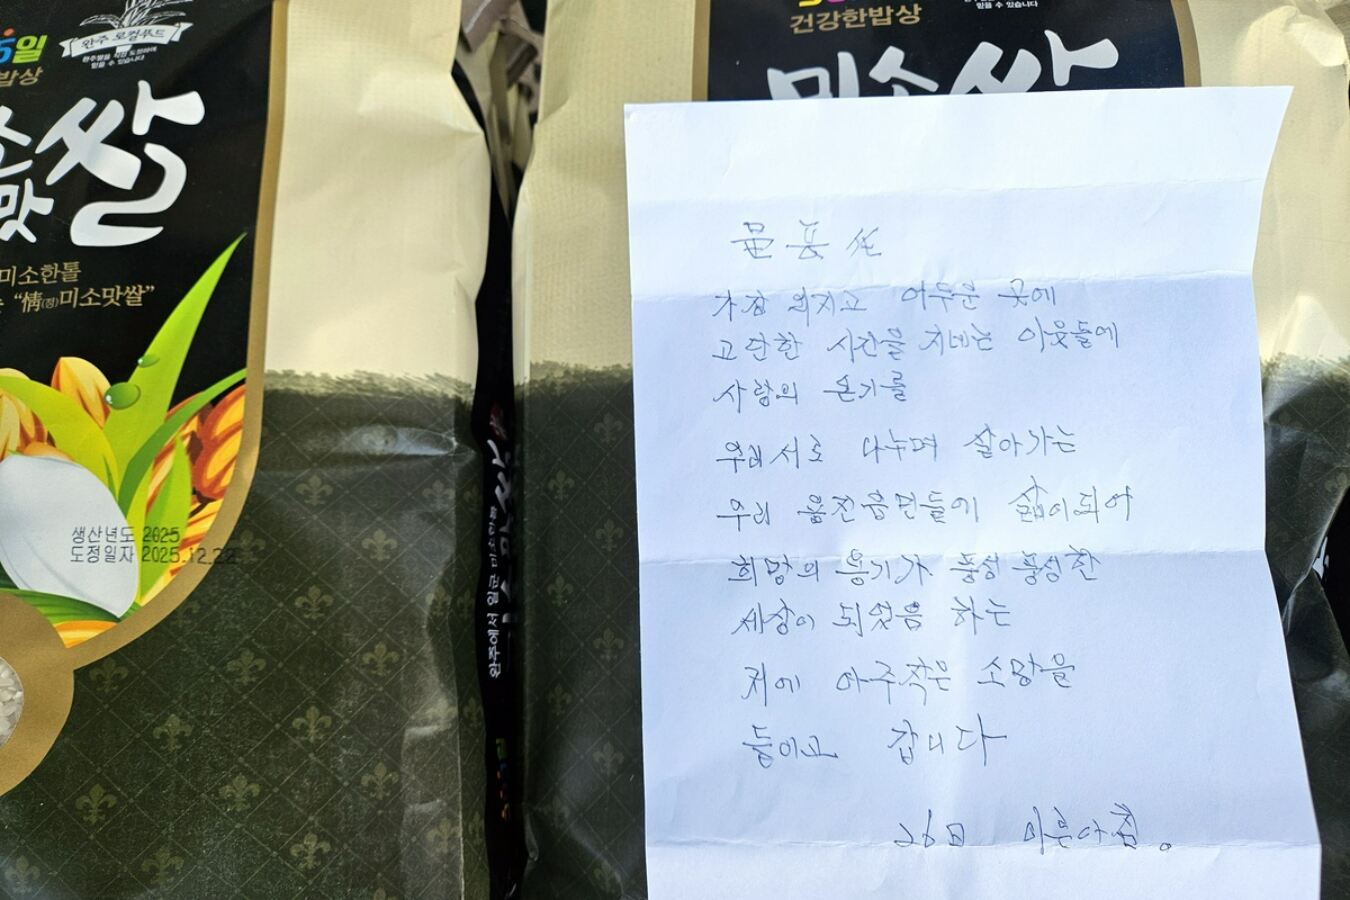 5일
밥상
완주 로컬푸드
믿을 수 있습니다
소
맛
쌀
미소한톨
“情(정)미소맛쌀”
생산년도 2025
도정일자 2025.12.22
건강한밥상
믿을 수 있습니다
미소쌀
가장 외지고 어두운 곳에
고단한 시간을 지내는 이웃들에
사랑의 온기를
우리 서로 나누며 살아가는
우리 용진읍민들에 삶이되어
희망의 용기가 풍성 풍성한
세상이 되었음 하는
저에 아주작은 소망을
들이고 갑니다
26日 이른아침。